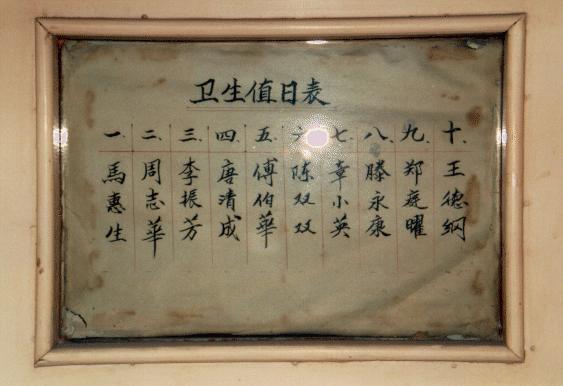 卫生值日表
一. 二. 三. 四. 五. 六. 七. 八. 九. 十.
馬惠生
周志華
李振芳
唐清成
傅伯華
陈双双
章小英
滕永康
郑庭曜
王德纲